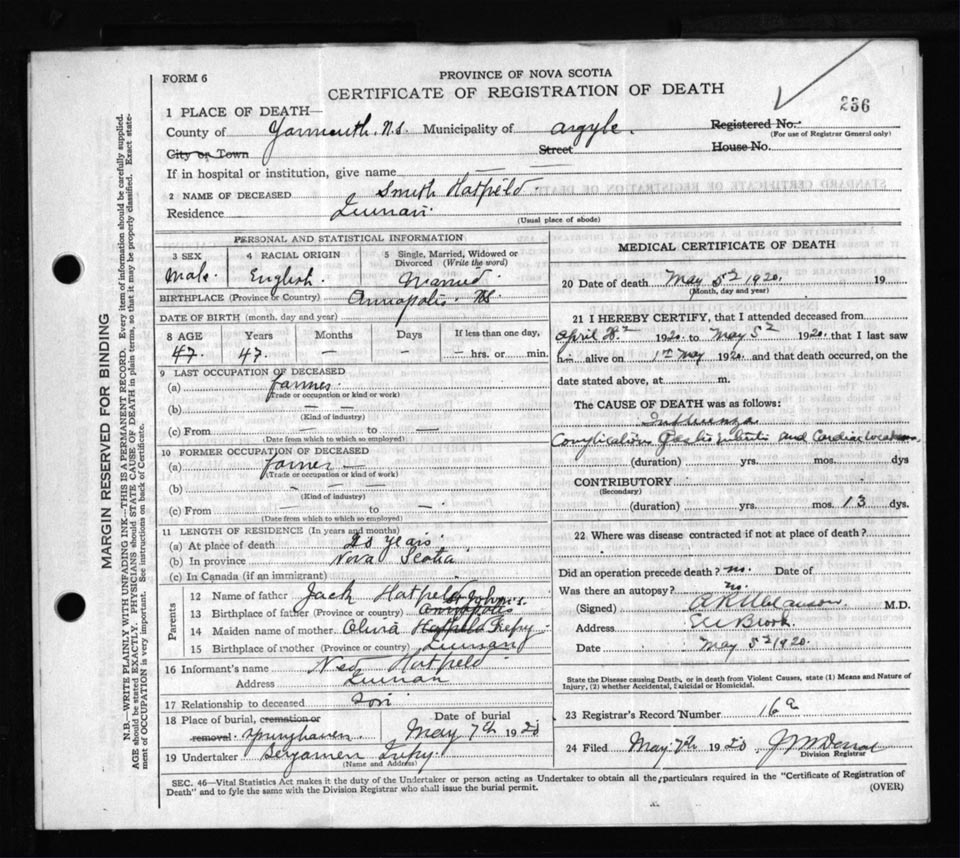 FORM 6
PROVINCE OF NOVA SCOTIA
CERTIFICATE OF REGISTRATION OF DEATH
236
1 PLACE OF DEATH—
County of Yarmouth. N.S. Municipality of Argyle. Registered No.
(For use of Registrar General only)
City or Town Street House No.
If in hospital or institution, give name
2 NAME OF DECEASED Smith Hatfield.
Residence Quinan.
(Usual place of abode)
PERSONAL AND STATISTICAL INFORMATION
3 SEX 4 RACIAL ORIGIN 5 Single, Married, Widowed or Divorced (Write the word)
Male. English. Married
BIRTHPLACE (Province or Country) Annapolis. NS.
DATE OF BIRTH (month, day and year)
8 AGE Years Months Days If less than one day,
47. 47. — — — hrs. or min.
9 LAST OCCUPATION OF DECEASED
(a) farmer.
(Trade or occupation or kind of work)
(b) — —
(Kind of industry)
(c) From — to —
(Date from which so employed)
10 FORMER OCCUPATION OF DECEASED
(a) farmer —
(Trade or occupation or kind of work)
(b) — — —
(Kind of industry)
(c) From — to —
(Date from which so employed)
11 LENGTH OF RESIDENCE (In years and months)
(a) At place of death years
(b) In province Nova Scotia
(c) In Canada (if an immigrant)
Parents
12 Name of father Jack Hatfield
St John's.
13 Birthplace of father (Province or country) Annapolis
14 Maiden name of mother Olivia Hatfield
15 Birthplace of mother (Province or country) Quinan
16 Informant's name Ned Hatfield
Address Quinan
17 Relationship to deceased Son
18 Place of burial, cremation or removal. Springhaven. Date of burial May 7th 1920
19 Undertaker Benjamen
(Name and Address)
MEDICAL CERTIFICATE OF DEATH
20 Date of death May 5th 1920. 19
(Month, day and year)
21 I HEREBY CERTIFY, that I attended deceased from
April 1920 to May 5th 1920 that I last saw
h alive on 1st May 1920 and that death occurred, on the
date stated above, at m.
The CAUSE OF DEATH was as follows:
Influenza
Complications and Cardiac
(duration) yrs. mos. dys
CONTRIBUTORY
(Secondary)
(duration) yrs. mos. 13 dys.
22 Where was disease contracted if not at place of death?
Did an operation precede death? no. Date of
Was there an autopsy? no.
(Signed) M.D.
Address Brook.
Date May 5th 1920.
State the Disease causing Death, or in death from Violent Causes, state (1) Means and Nature of
Injury, (2) whether Accidental, Suicidal or Homicidal.
23 Registrar's Record Number 16a
24 Filed May 7th 1920
Division Registrar
SEC. 46—Vital Statistics Act makes it the duty of the Undertaker or person acting as Undertaker to obtain all the particulars required in the "Certificate of Registration of
Death" and to fyle the same with the Division Registrar who shall issue the burial permit. (OVER)
MARGIN RESERVED FOR BINDING
N.B.—WRITE PLAINLY WITH UNFADING INK—THIS IS A PERMANENT RECORD. Every item of information should be carefully supplied.
AGE should be stated EXACTLY. PHYSICIANS should STATE CAUSE OF DEATH in plain terms, so that it may be properly classified. Exact state-
ment of OCCUPATION is very important. See instructions on back of Certificate.